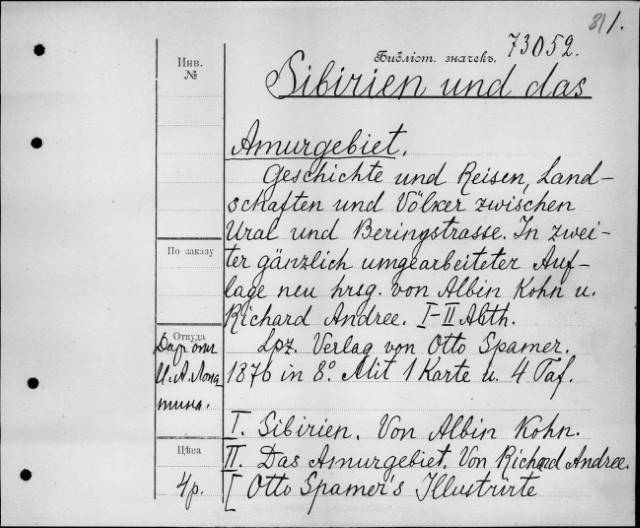 8/1.
73052.
Инв.
№
Библіот. значекъ.
Sibirien und das
Amurgebiet.
Geschichte und Reisen, Land-
schaften und Völker zwischen
Ural und Beringstrasse. In zwei-
ter gänzlich umgearbeiteter Auf-
lage neu hrsg. von Albin Kohn u.
Richard Andree. I-II Abth.
Lpz. Verlag von Otto Spamer.
1876 in 8°. Mit 1 Karte u. 4 Taf.
I. Sibirien. Von Albin Kohn.
II. Das Amurgebiet. Von Richard Andree.
[ Otto Spamer's Illustrirte
По заказу
Откуда
Даръ отъ
И. А. Лопа-
тина.
Цѣна
4р.